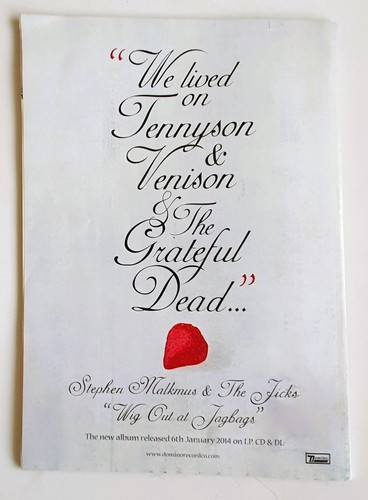 “We lived
on
Tennyson
&
Venison
& The
Grateful
Dead...”
Stephen Malkmus & The Jicks
“Wig Out at Jagbags”
The new album released 6th January 2014 on LP, CD & DL
www.dominorecordco.com